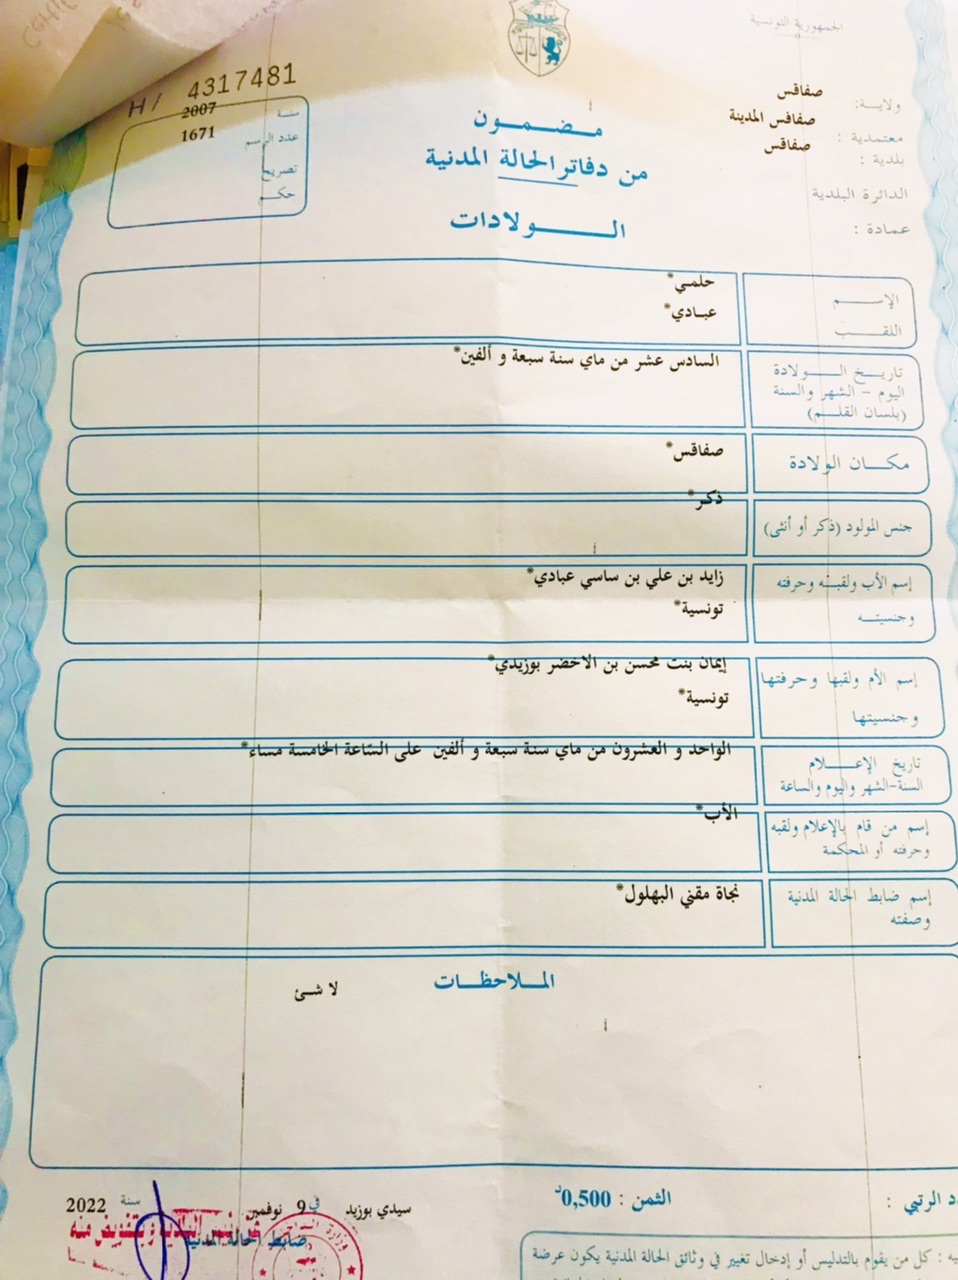 الجمهورية التونسية
ولاية: صفاقس
معتمدية : صفاقس المدينة
بلدية : صفاقس
الدائرة البلدية
عمادة :
H/ 4317481
سنة 2007
عدد الرسم 1671
تصريح
حكم
مضمون
من دفاتر الحالة المدنية
الولادات
الإسم حلمي*
اللقب عبادي*
تاريخ الولادة السادس عشر من ماي سنة سبعة و ألفين*
اليوم - الشهر والسنة
(بلسان القلم)
مكان الولادة صفاقس*
جنس المولود (ذكر أو أنثى) ذكر*
إسم الأب ولقبه وحرفته زايد بن علي بن ساسي عبادي*
وجنسيته تونسية*
إسم الأم ولقبها وحرفتها إيمان بنت محسن بن الاخضر بوزيدي*
وجنسيتها تونسية*
تاريخ الإعلام الواحد و العشرون من ماي سنة سبعة و ألفين على السّاعة الخامسة مساء*
السنة-الشهر واليوم والساعة
إسم من قام بالإعلام ولقبه الأب*
وحرفته أو المحكمة
إسم ضابط الحالة المدنية نجاة مقني البهلول*
وصفته
الملاحظات
لا شئ
الرتبي : الثمن : 0,500د
سيدي بوزيد في 9 نوفمبر سنة 2022
ضابط الحالة المدنية
وبتفويض منه
وزارة
: كل من يقوم بالتدليس أو إدخال تغيير في وثائق الحالة المدنية يكون عرضة